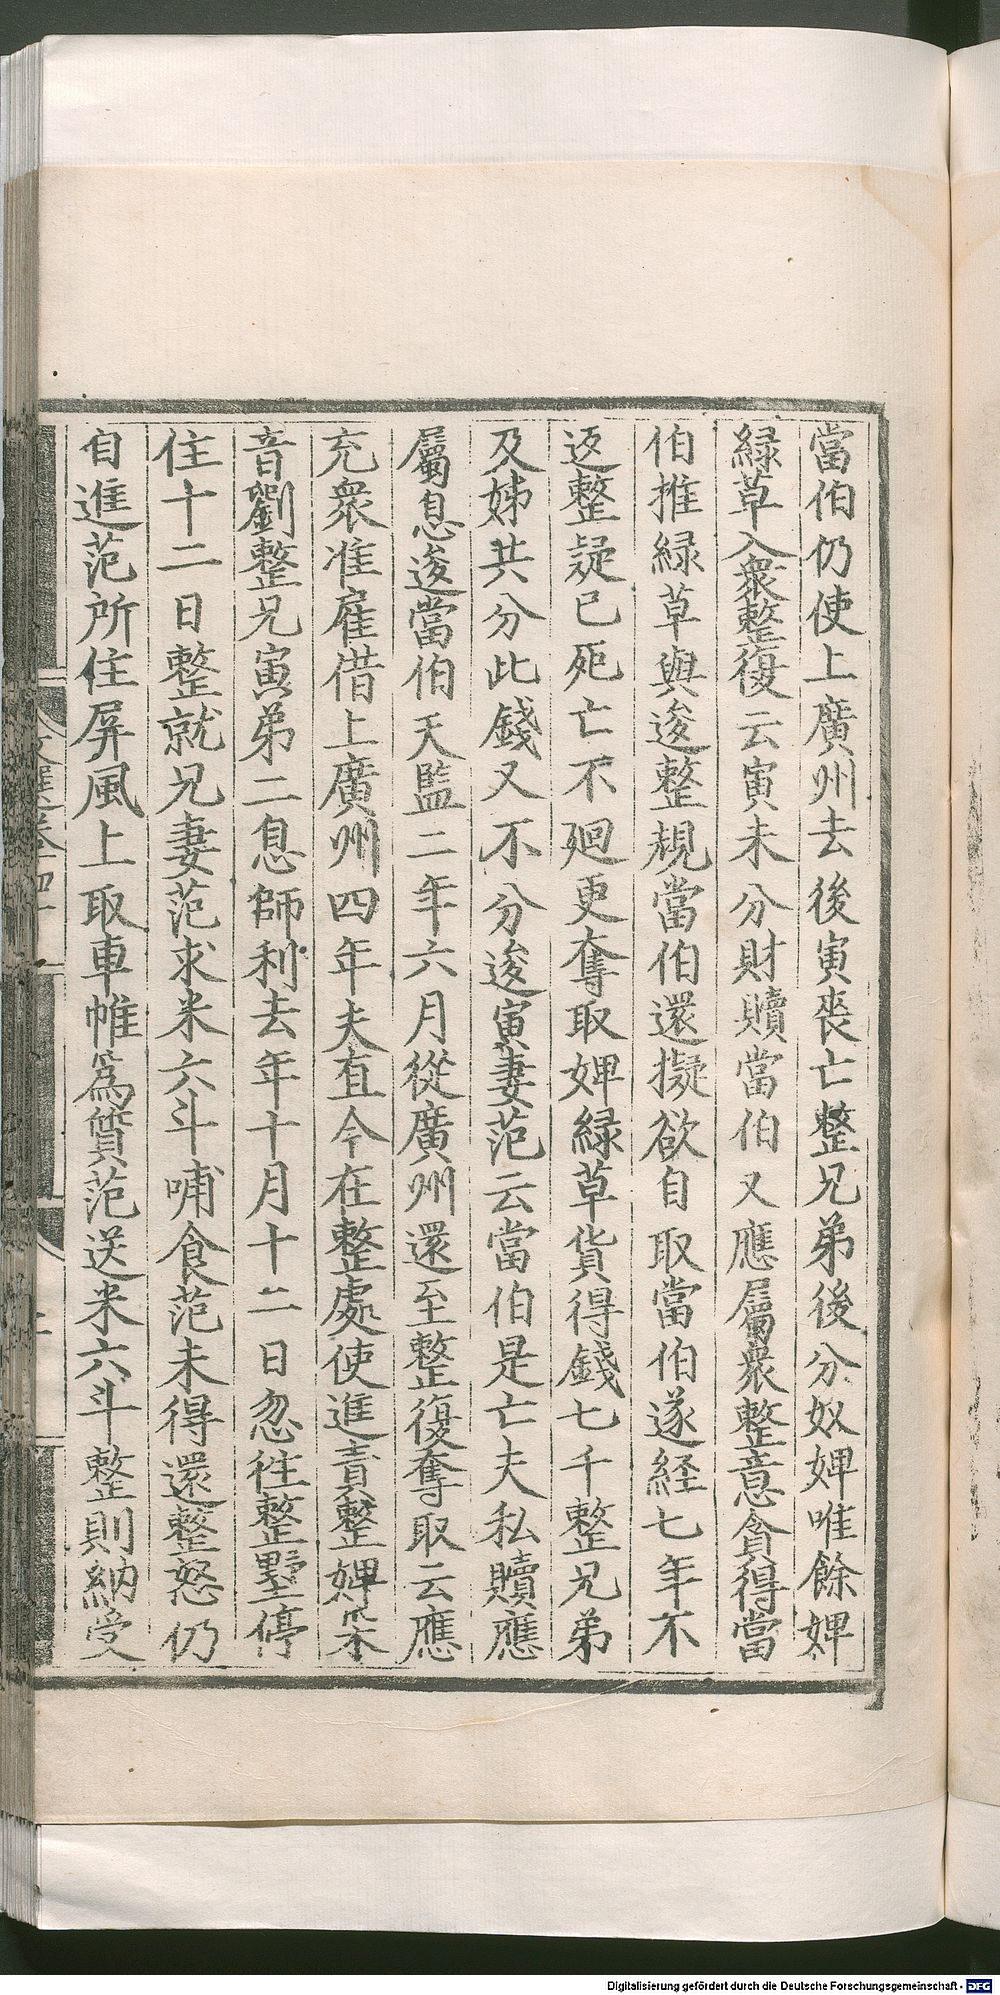 當伯仍使上廣州去後寅喪亡整兄弟後分奴婢唯餘婢
綠草入衆整復云寅未分財贖當伯又應屬衆整意貪得當
伯推綠草與逡整規當伯還擬欲自取當伯遂經七年不
返整疑已死亡不廻更奪取婢綠草貨得錢七千整兄弟
及姊共分此錢又不分逡寅妻范云當伯是亡夫私贖應
屬息逡當伯天監二年六月從廣州還至整復奪取云應
充衆准雇借上廣州四年夫直今在整處使進責整婢采
音劉整兄寅弟二息師利去年十月十二日忽往整墅停
住十二日整就兄妻范求米六斗哺食范未得還整怒仍
自進范所住屏風上取車帷爲質范送米六斗整則納受
Digitalisierung gefördert durch die Deutsche Forschungsgemeinschaft - DFG